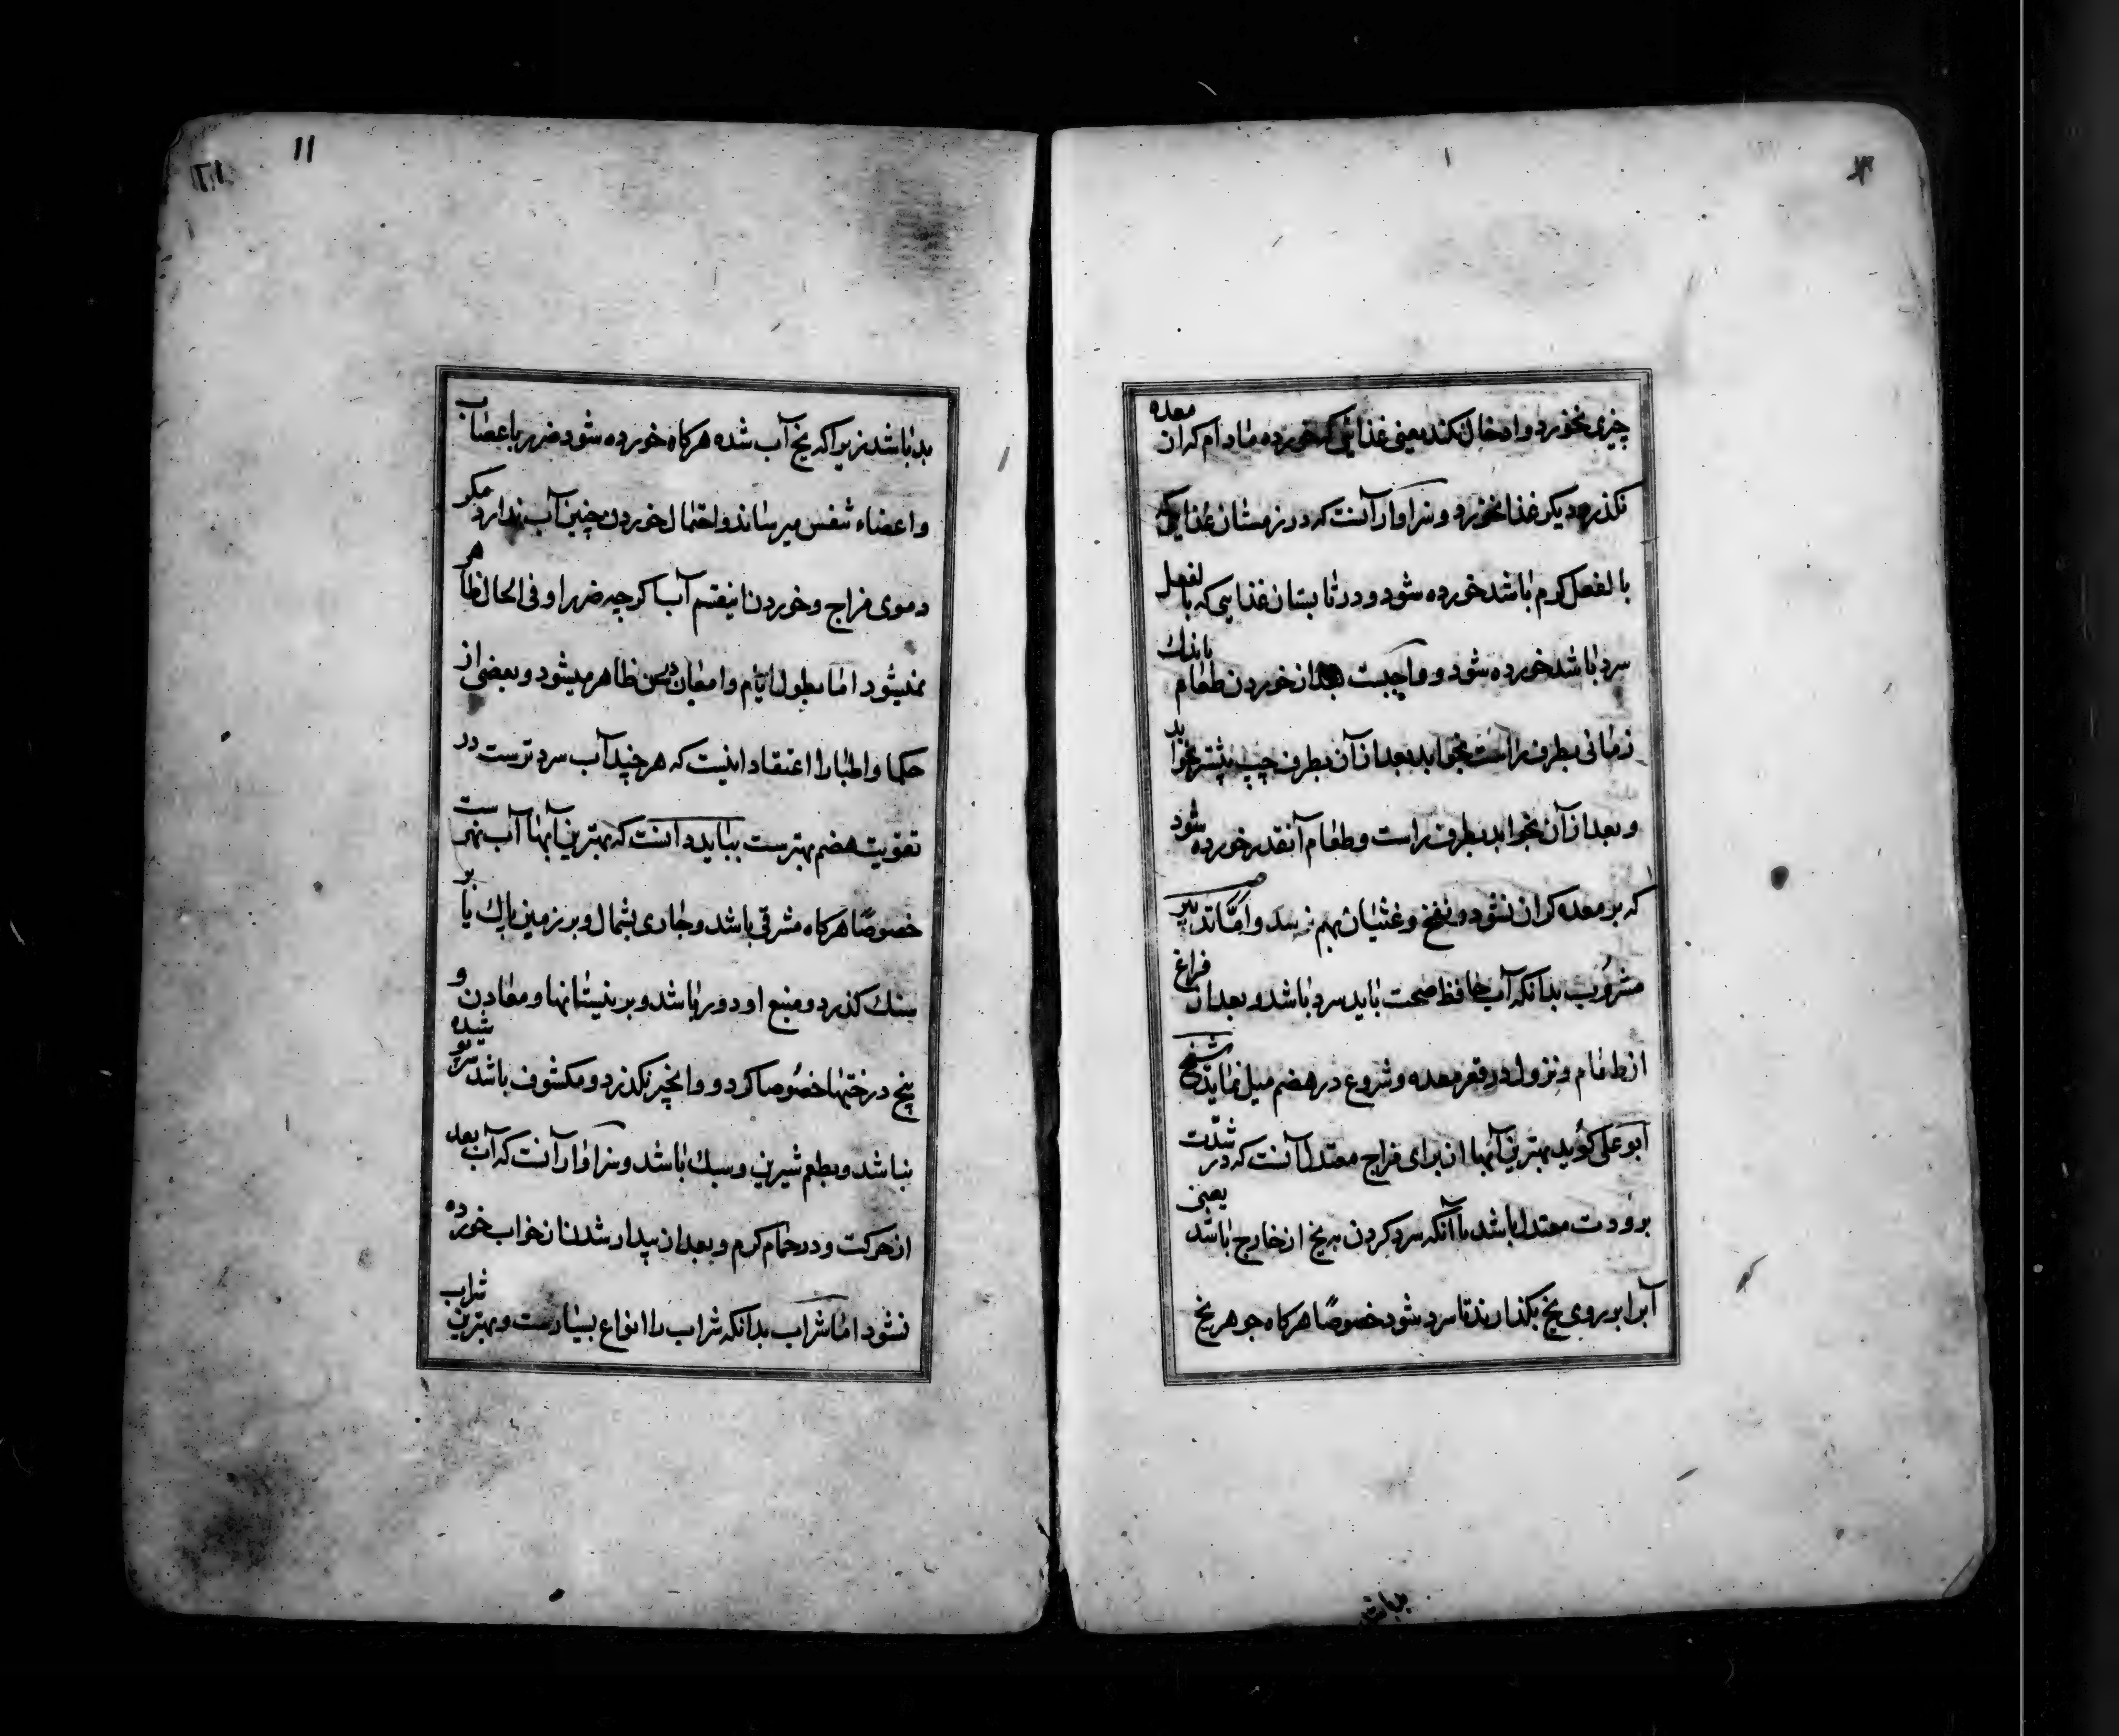 چیزی نخورد و ادخال نکند یعنی غذائی که خورده مادام که از آن معده
نکذرد دیکر غذا نخورد و سزاوار آنست که در زمستان غذایی که
بالفعل کرم باشد خورده شود و در تابستان غذایی که بالفعل
سرد باشد خورده شود و واجبست بعد از خوردن طعام باندك
زمانی بطرف راست بخوابد بعد از آن بطرف چپ بیشتر بخوابد
و بعد از آن بخوابد بطرف راست و طعام آنقدر خورده شود
که بر معده کران نشود و نفخ و غثیان بهم نرسد و اما تدبیر
مشروب بدانکه آب حافظ صحت باید سرد باشد و بعد از فراغ
از طعام و نزول در قعر معده و شروع در هضم میل نماید شیخ
ابو علی کوید بهترین آبها از برای مزاج معتدل آنست که در شدت
برودت معتدل باشد با آنکه سرد کردن به یخ از خارج باشد یعنی
آبرا بر روی یخ بکذارند تا سرد شود خصوصًا هرکاه جوهر یخ
۱۱
بد باشد زیرا که یخ آب شده هرکاه خورده شود ضرر باعصاب
و اعضاء تنفس میرساند و احتمال خوردن چنین آب ندارد مکر
دموی مزاج و خوردن اینقسم آب اکرچه ضرر او فی الحال ظاهر
نمیشود اما بطول ایام و امعان سن ظاهر میشود و بعضی از
حکما و اطبا را اعتقاد اینست که هر چند آب سردترست در
تقویت هضم بهترست بباید دانست که بهترین آبها آب نهرست
خصوصًا هرکاه مشرقی باشد و جاری بشمال و بر زمین پاك یا بر
سنك کذرد و منبع او دور باشد و بر نیستانها و معادن و
بیخ درختها خصوصا کردو و انجیر نکذرد و مکشوف باشد سرپوشیده
نباشد و بطعم شیرین و سبك باشد و سزاوار آنست که آب بعد
از حرکت و در حمام کرم و بعد از بیدار شدن از خواب خورده
نشود اما شراب بدانکه شراب را انواع بسیارست و بهترین شراب